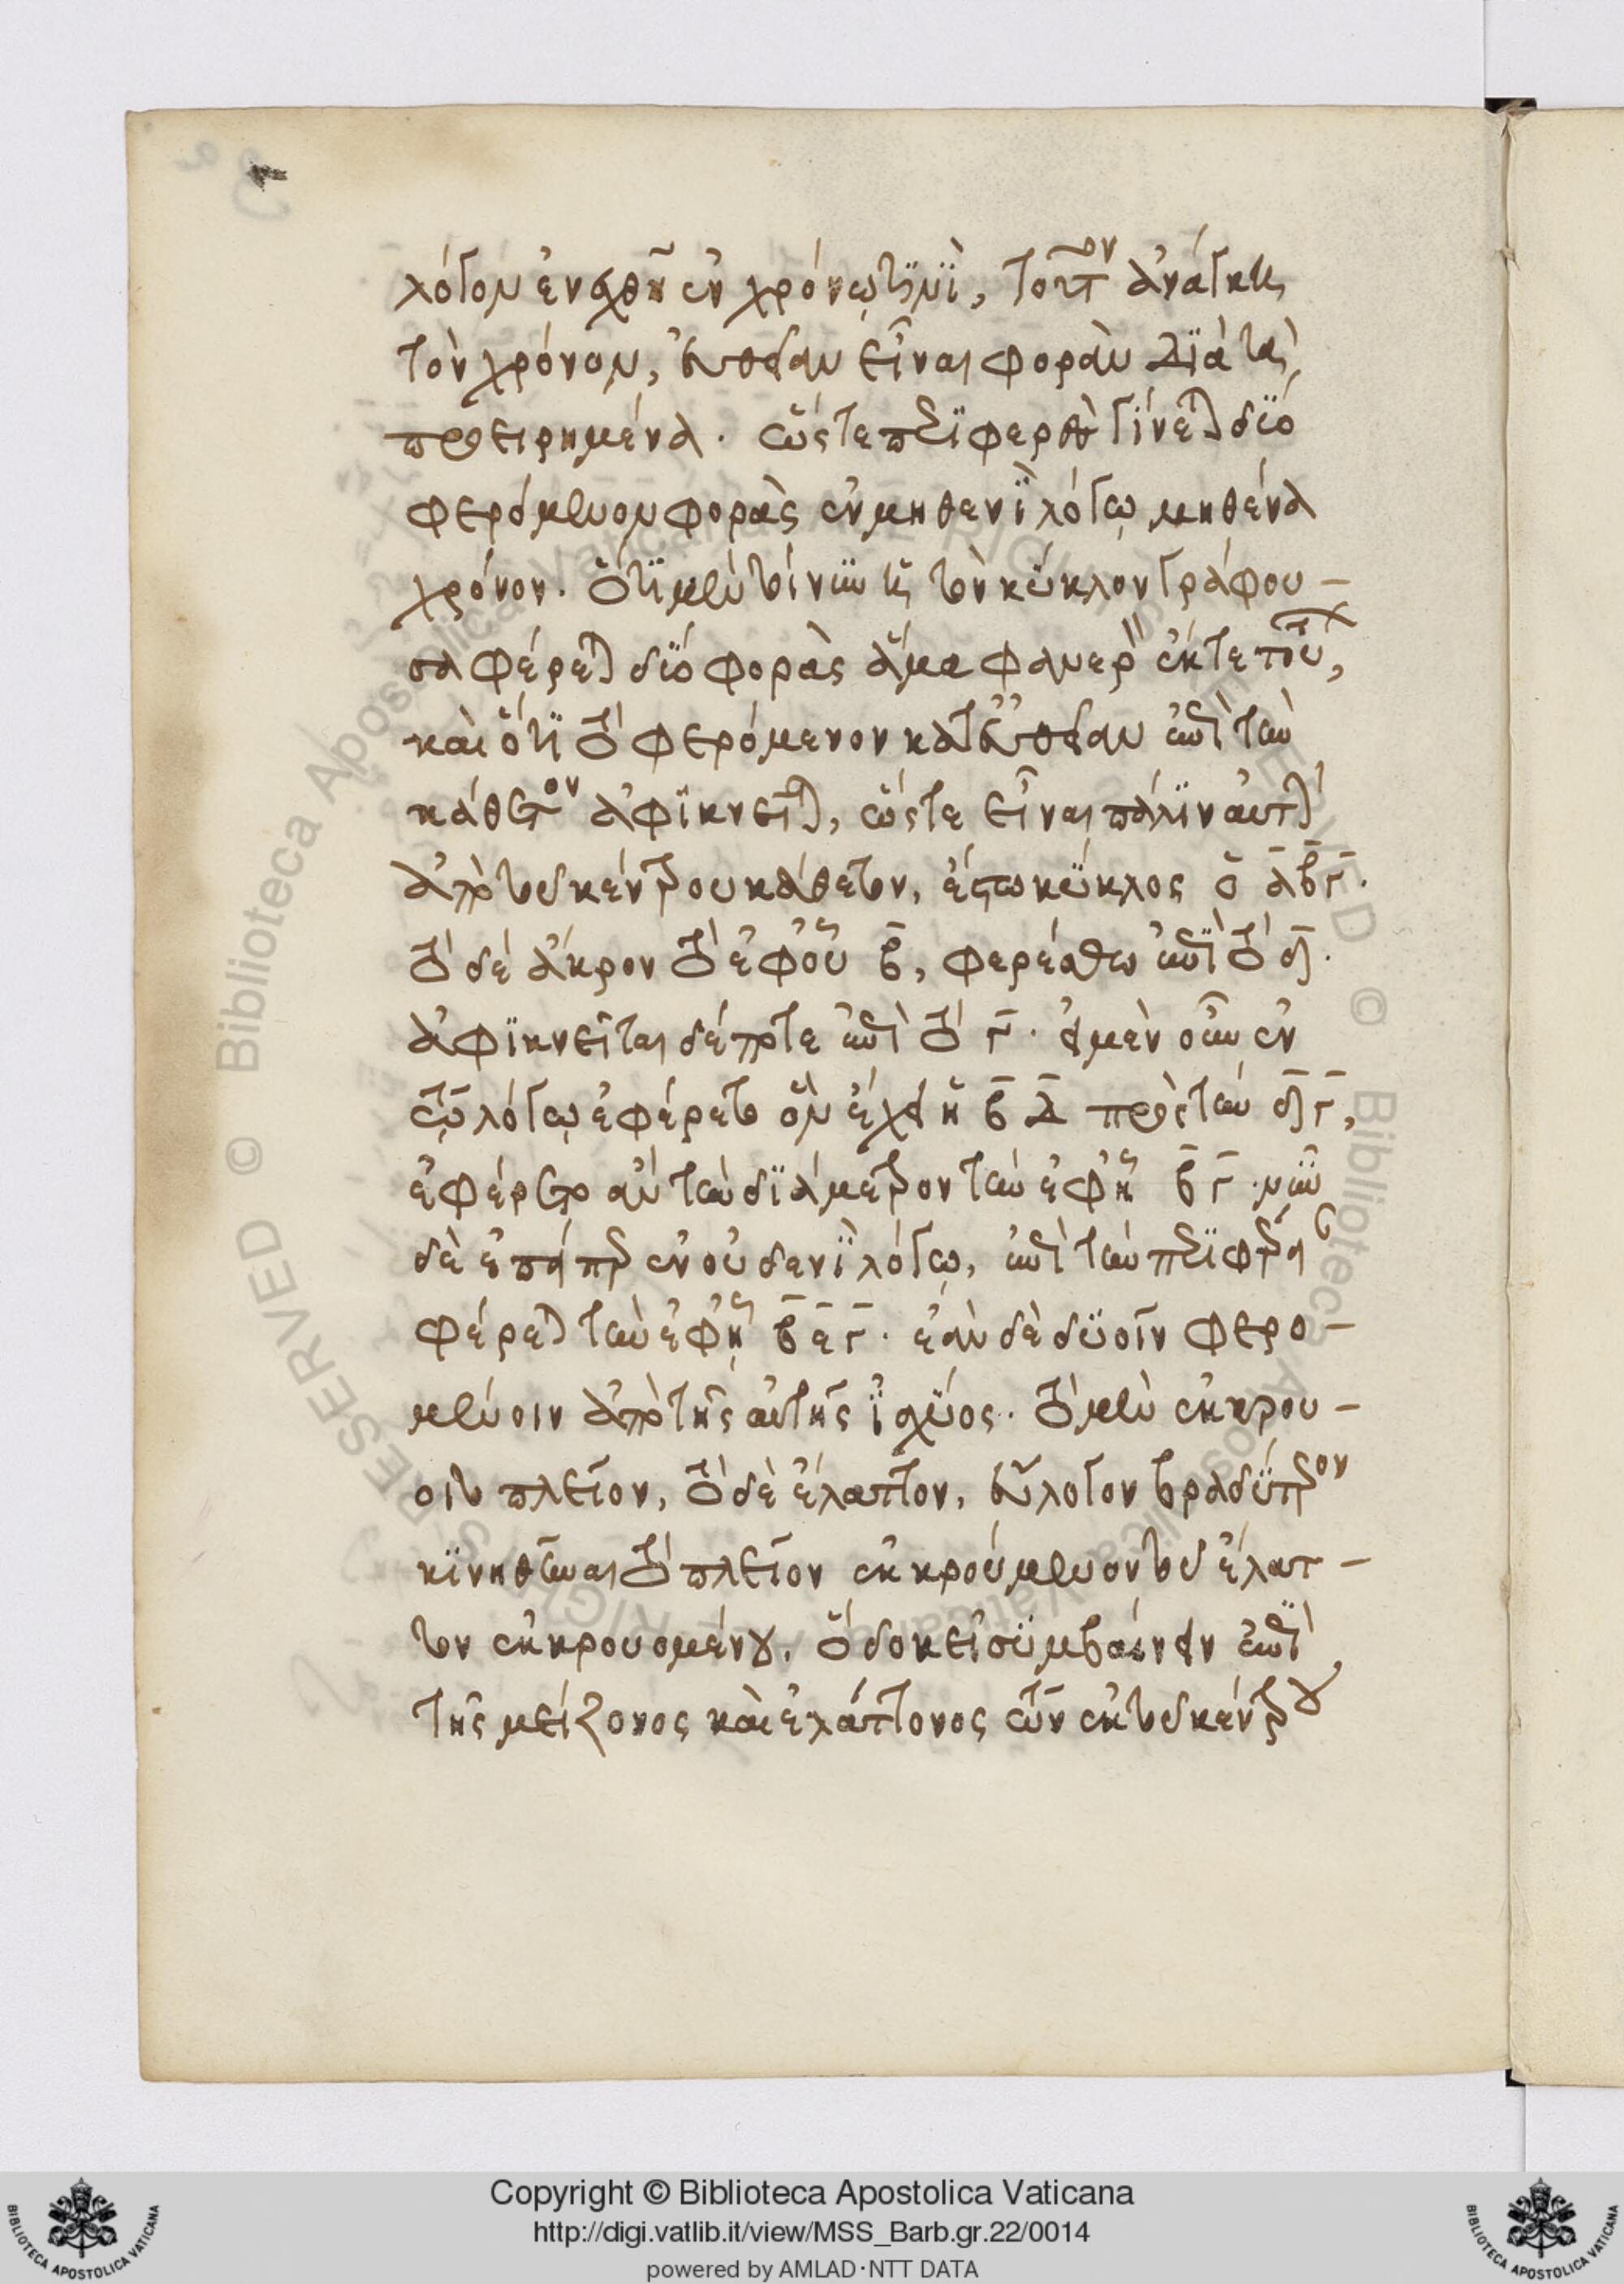 λόγον ἐνεχθῆ ἐν χρόνῳ τινὶ, τοῦτον ἀνάγκη
τὸν χρόνον, εὐθεῖαν εἶναι φορὰν διὰ τὰ
προειρημένα. ὥστε περιφερὴς γίνεται δύο
φερόμενον φορὰς ἐν μηθενὶ λόγῳ μηθένα
χρόνον. ὅτι μὲν τοίνυν ἡ τὸν κύκλον γράφου-
σα φέρεται δύο φορὰς ἅμα φανερὸν ἔκ τε τούτων,
καὶ ὅτι τὸ φερόμενον κατ' εὐθεῖαν ἐπὶ τὴν
κάθετον ἀφικνεῖται, ὥστε εἶναι πάλιν αὐτὴν
ἀπὸ τοῦ κέντρου κάθετον, ἔστω κύκλος ὁ α̅β̅γ̅.
τὸ δὲ ἄκρον τὸ ἐφ' οὗ β̅, φερέσθω ἐπὶ τὸ δ̅.
ἀφικνεῖται δέ ποτε ἐπὶ τὸ γ̅. εἰ μὲν οὖν ἐν
τῷ λόγῳ ἐφέρετο ὃν ἔχει ἡ β̅δ̅ πρὸς τὴν δ̅γ̅,
ἐφέρετο ἂν τὴν διάμετρον τὴν ἐφ' ἣ β̅γ̅. νῦν
δὲ ἐπείπερ ἐν οὐδενὶ λόγῳ, ἐπὶ τὴν περιφέρειαν
φέρεται τὴν ἐφ' ᾗ β̅ε̅γ̅. ἐὰν δὲ δυοῖν φερο-
μένοιν ἀπὸ τῆς αὐτῆς ἰσχύος. τὸ μὲν ἐκκρού-
οιτο πλεῖον, τὸ δὲ ἔλαττον, εὔλογον βραδύτερον
κινηθῆναι τὸ πλεῖον ἐκκρουόμενον τοῦ ἔλατ-
τον ἐκκρουομένου. ὃ δοκεῖ συμβαίνειν ἐπὶ
τῆς μείζονος καὶ ἐλάττονος τῶν ἐκ τοῦ κέντρου
Copyright © Biblioteca Apostolica Vaticana
http://digi.vatlib.it/view/MSS_Barb.gr.22/0014
powered by AMLAD·NTT DATA